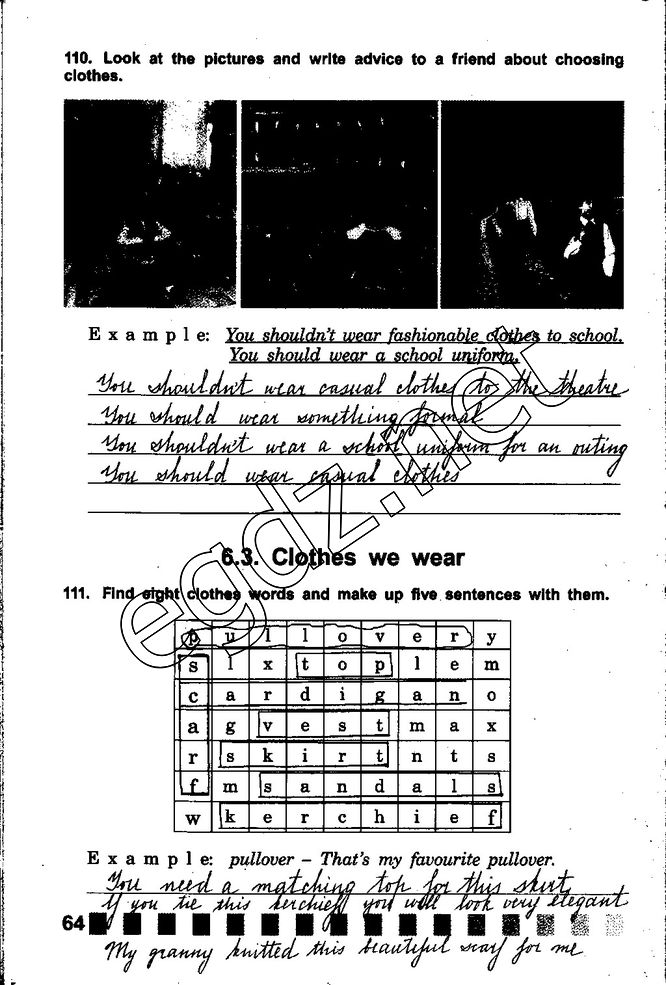 110. Look at the pictures and write advice to a friend about choosing
clothes.
Example: You shouldn't wear fashionable clothes to school.
You should wear a school uniform.
You shouldn't wear casual clothes to the theatre
You should wear something formal
You shouldn't wear a school uniform for an outing
You should wear casual clothes
egdz.net
6.3. Clothes we wear
111. Find eight clothes words and make up five sentences with them.
p u l l o v e r y
s l x t o p l e m
c a r d i g a n o
a g v e s t m a x
r s k i r t n t s
f m s a n d a l s
w k e r c h i e f
Example: pullover – That's my favourite pullover.
You need a matching top for this skirt.
If you tie this kerchief you will look very elegant
64
My granny knitted this beautiful scarf for me